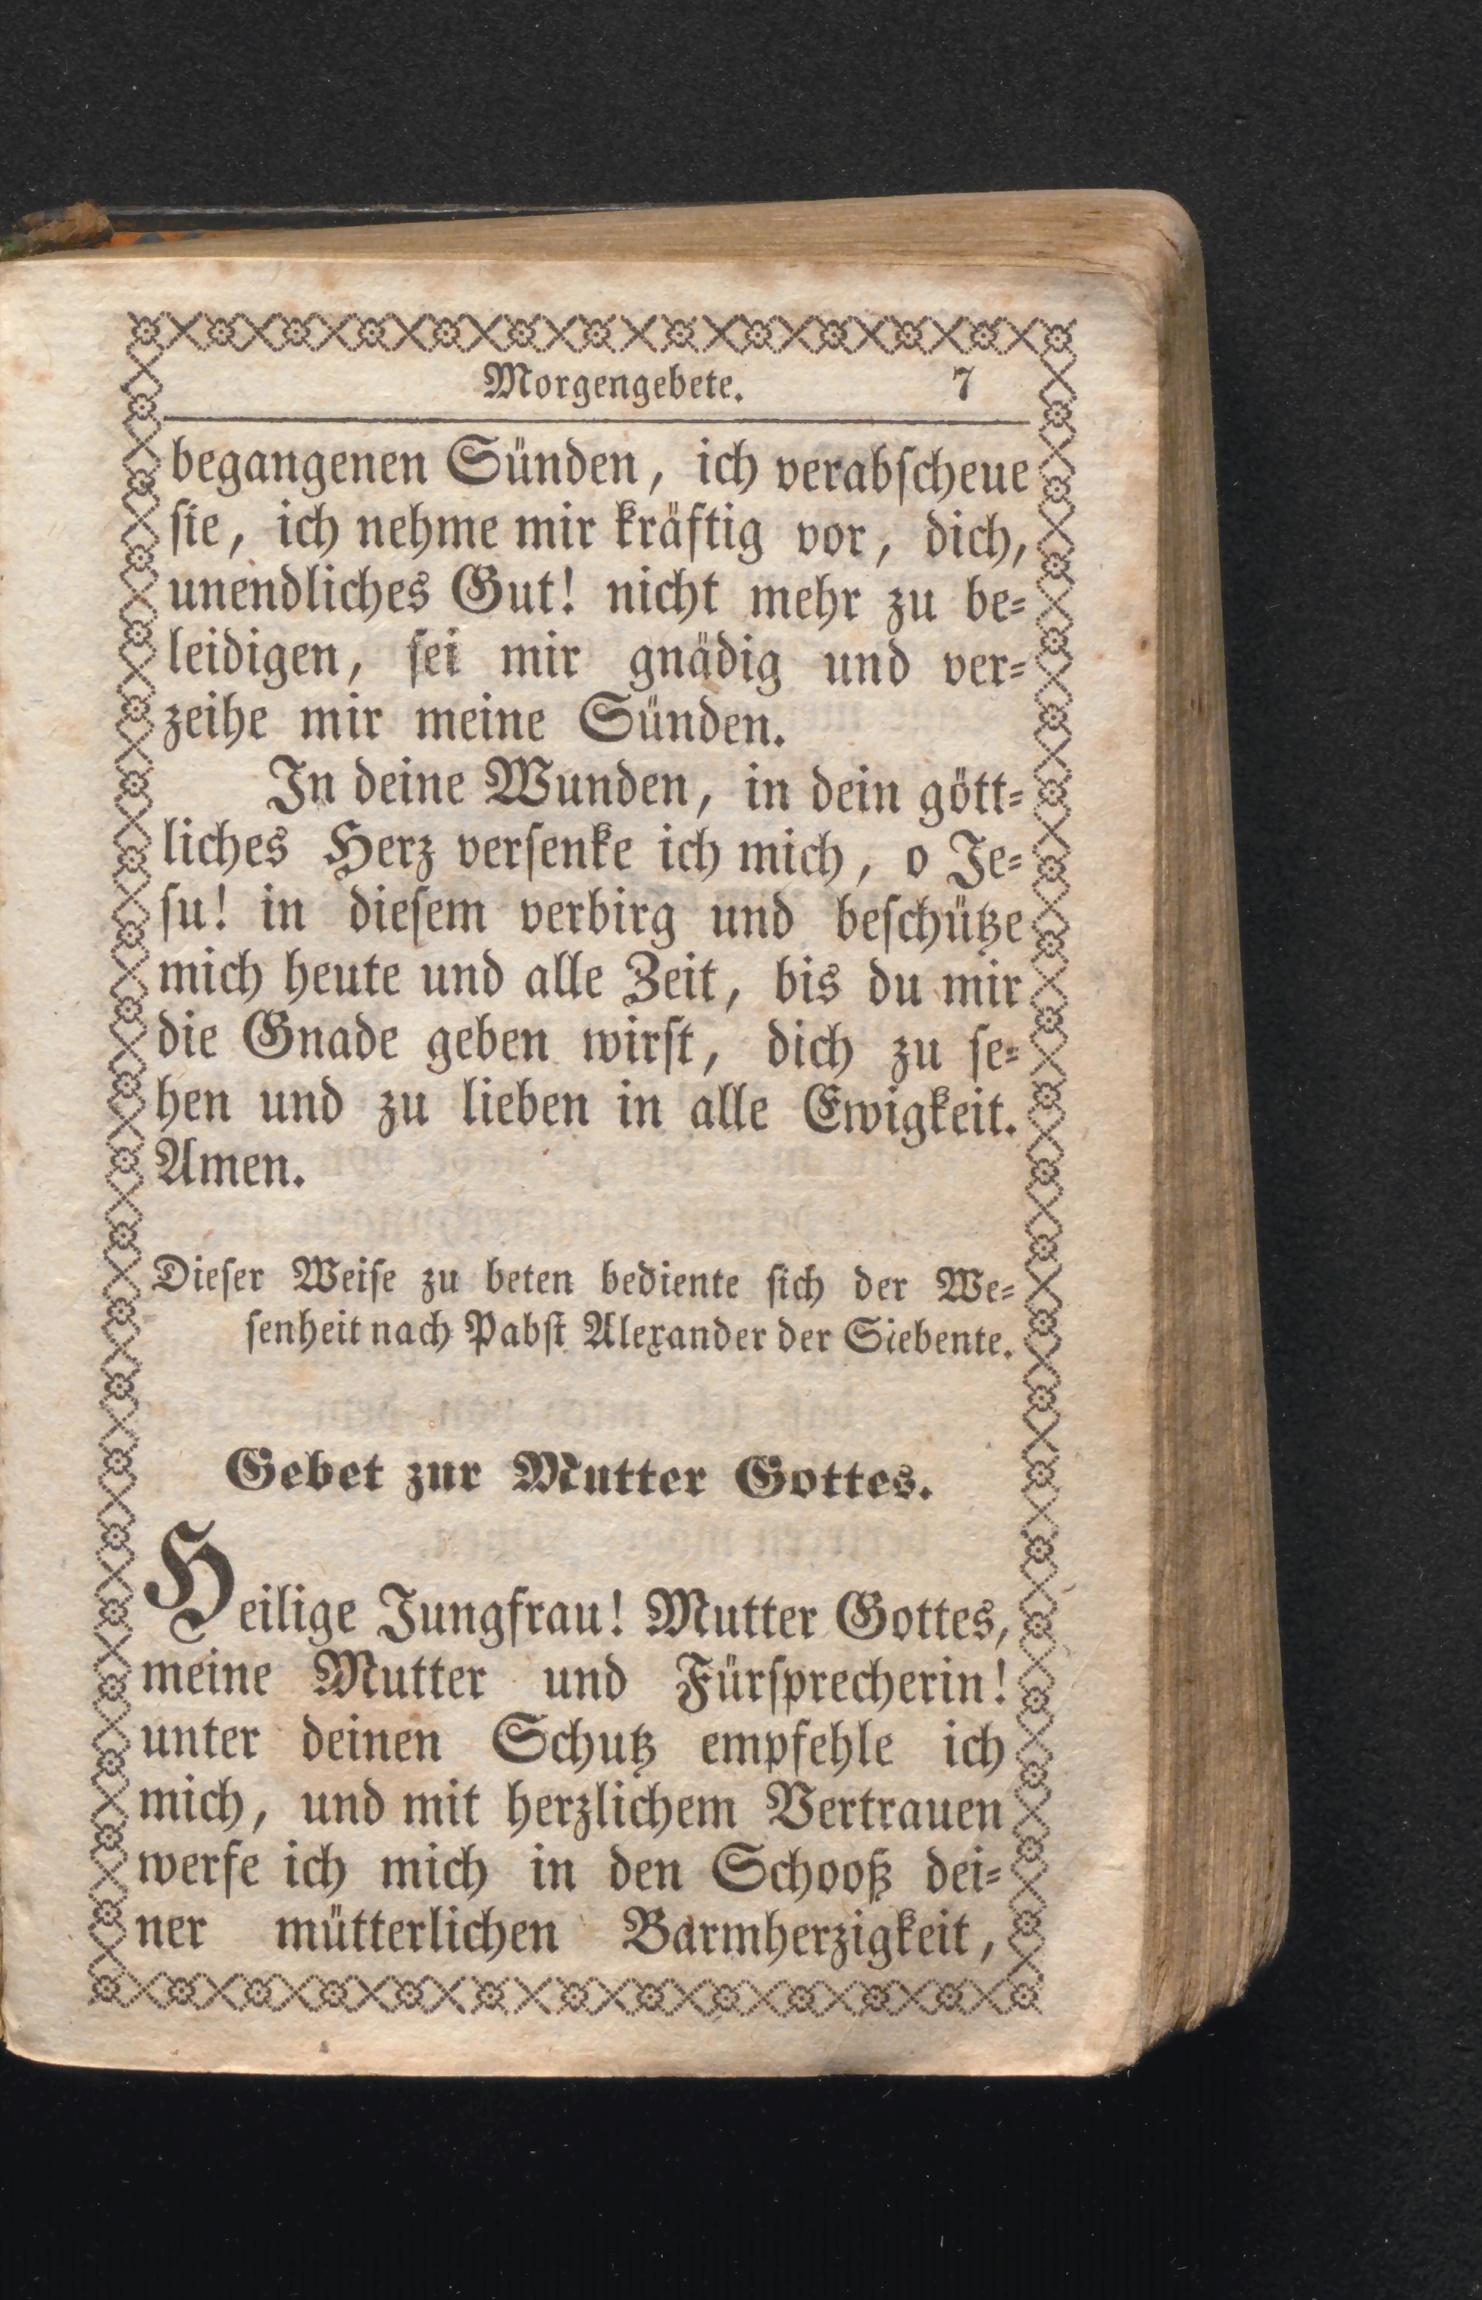 Morgengebete. 7
begangenen Sünden, ich verabſcheue
ſie, ich nehme mir kräftig vor, dich,
unendliches Gut! nicht mehr zu be⸗
leidigen, ſei mir gnädig und ver⸗
zeihe mir meine Sünden.
In deine Wunden, in dein gött⸗
liches Herz verſenke ich mich, o Je⸗
ſu! in dieſem verbirg und beſchütze
mich heute und alle Zeit, bis du mir
die Gnade geben wirſt, dich zu ſe⸗
hen und zu lieben in alle Ewigkeit.
Amen.
Dieſer Weiſe zu beten bediente ſich der We⸗
ſenheit nach Pabſt Alexander der Siebente.
Gebet zur Mutter Gottes.
Heilige Jungfrau! Mutter Gottes,
meine Mutter und Fürſprecherin!
unter deinen Schutz empfehle ich
mich, und mit herzlichem Vertrauen
werfe ich mich in den Schooß dei⸗
ner mütterlichen Barmherzigkeit,